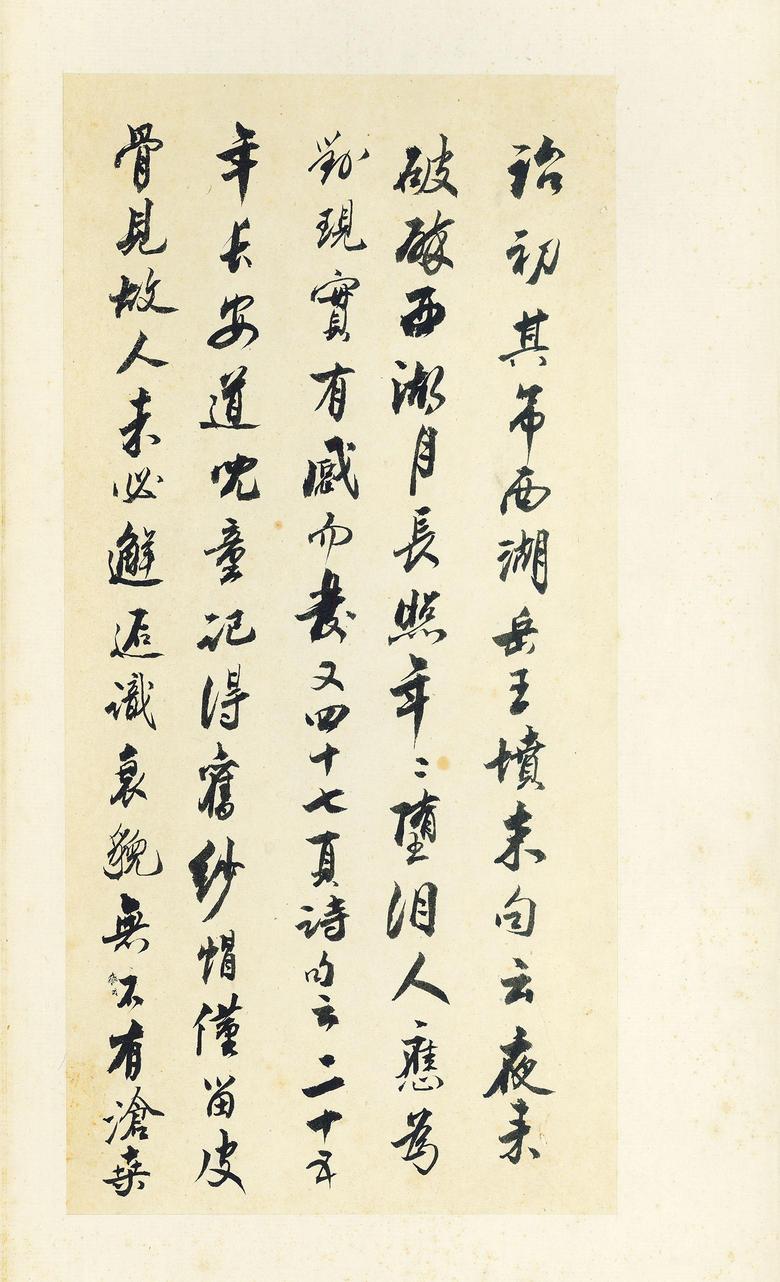 詒初其弔西湖岳王墳末句云夜来
破碎西湖月長照年〻墮泪人應為
對現實有感而發又四十七頁詩句云二十五
年长安道児童記得舊紗帽僅留皮
骨見故人未必邂逅識衰貌無不有滄桑